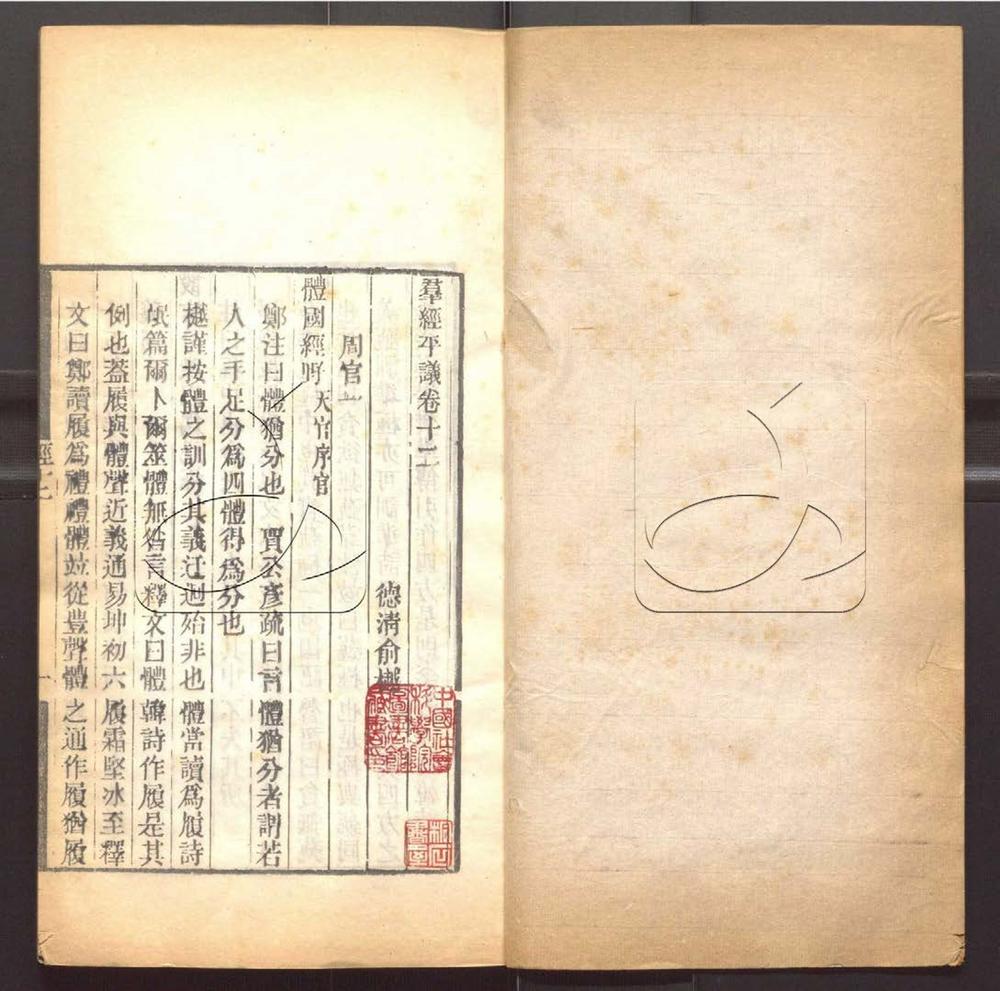 羣經平議卷十二
德清俞樾
周官一
體國經野 天官序官
鄭注曰體猶分也 賈公彥疏曰言體猶分者謂若
人之手足分爲四體得爲分也
樾謹按體之訓分其義迂迴殆非也體當讀爲履詩
氓篇爾卜爾筮體無咎言釋文曰體韓詩作履是其
例也蓋履與體聲近義通易坤初六履霜堅冰至釋
文曰鄭讀履爲禮禮體竝從豊聲體之通作履猶履
中國社會科學院圖書館藏書章